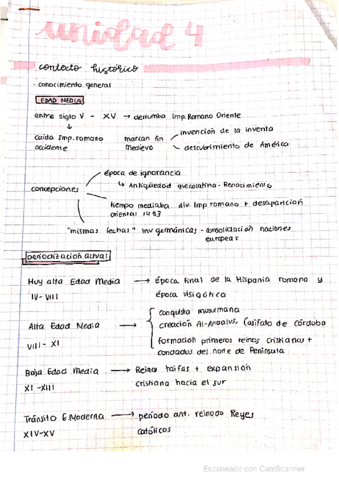 unidad 4
contexto histórico
· conocimiento general
EDAD MEDIA
entre siglo V - XV → derrumba Imp. Romano Oriente
caída Imp. romano occidente
marcan fin Medievo
invención de la inventa
descubrimiento de América
concepciones
época de ignorancia
↳ Antigüedad grecolatina - Renacimiento
tiempo mediaba div. Imp romano + desaparicion
oriental 1453
"mismas fechas" inv germánicas - consolidación naciones
europeas
periodización actual
Muy alta Edad Media → época final de la Hispania romana y
IV - VIII
época visigótica
Alta Edad Media →
VIII - XI
conquista musulmana
creación Al-Andalus, Califato de Córdoba
formación primeros reinos cristianos +
condados del norte de Península
Baja Edad Media → Reino taifas + expansión
XI - XIII
cristiana hacia el sur
Tránsito E. Moderna → período ant. reinado Reyes
XIV-XV
católicos
Escaneado con CamScanner